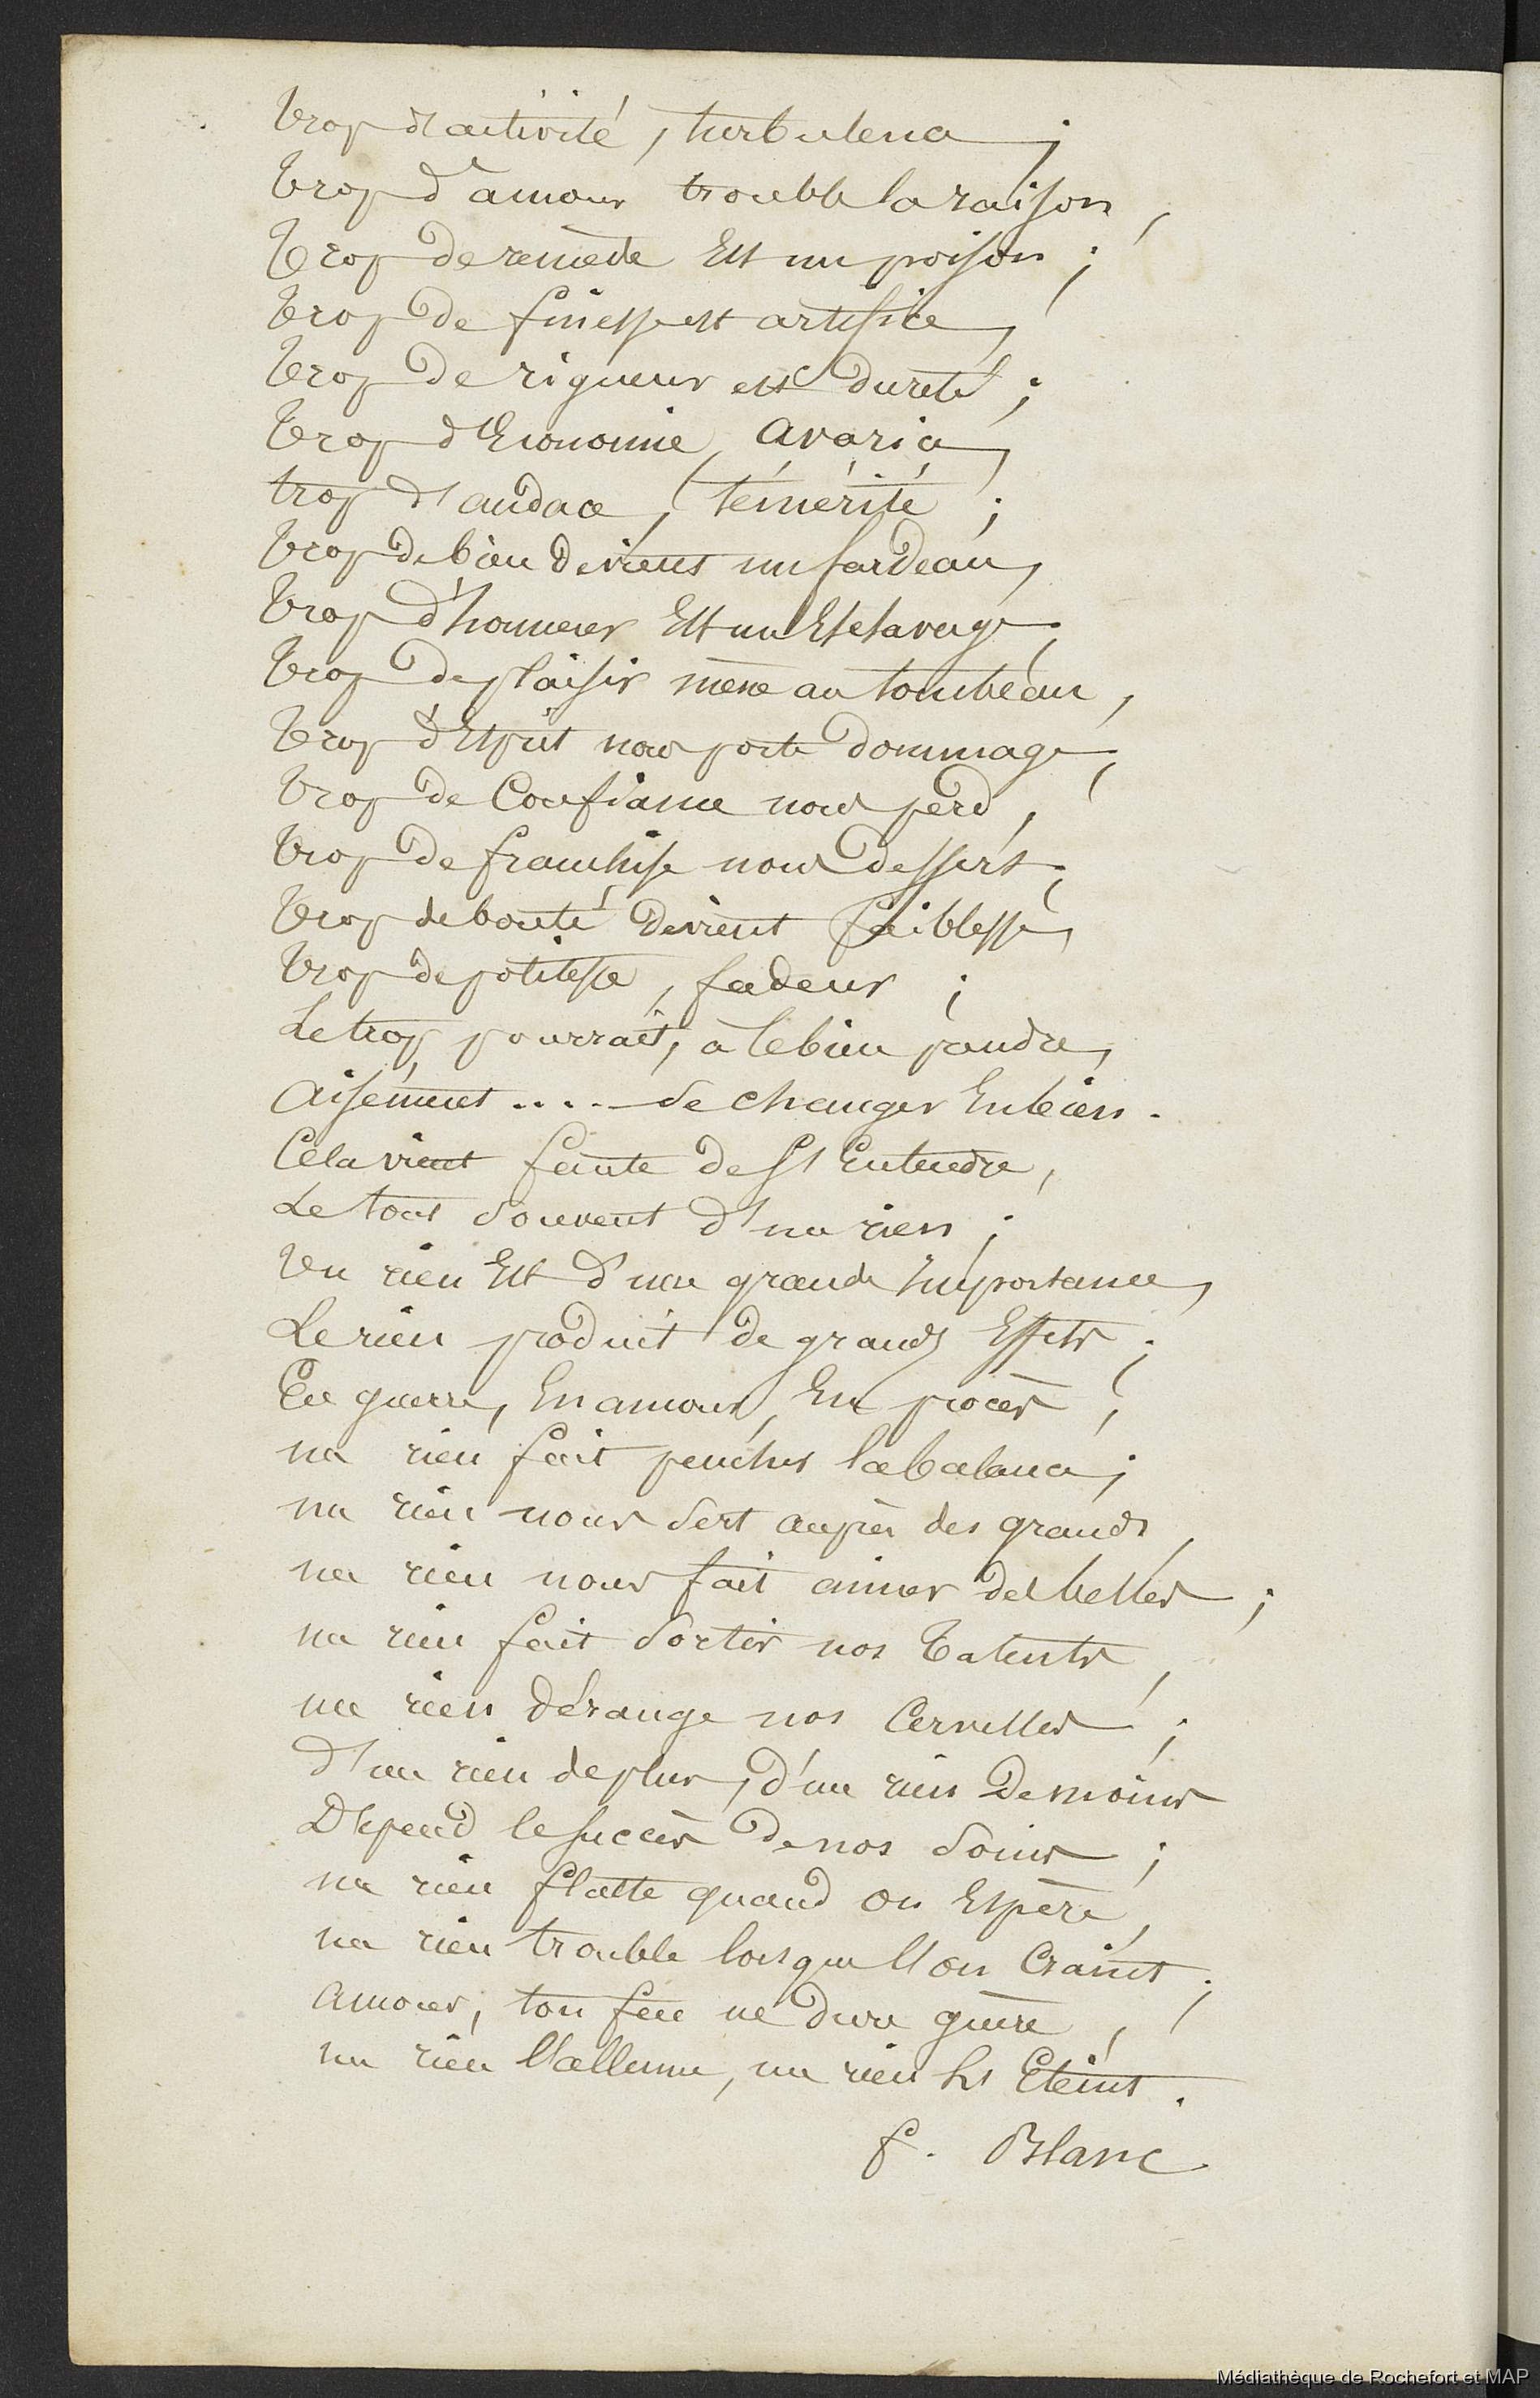 Trop d'activité, turbulence ;
Trop d'amour trouble la raison,
Trop de remède Est un poison ;
Trop de finesse est artifice,
Trop de rigueur est dureté ;
Trop d'Economie, avarice,
trop d'audace, témérité ;
Trop de bien devient un fardeau,
Trop d'honneur Est un Esclavage,
Trop de plaisir mène au tombeau,
Trop d'Esprit nous porte dommage,
Trop de Confiance nous perd,
Trop de franchise nous dessert,
Trop de bonté devient faiblesse,
Trop de politesse, fadeur ;
Le trop pourrait, à le bien prendre,
Aisément .... se changer En bien.
Cela vient faute de s'Entendre,
Le tout souvent d'un rien ;
Un rien Est d'une grande Importance,
Le rien produit de grands Effets ;
En guerre, En amour, En procès,
un rien fait pencher la balance ;
un rien nous sert auprès des grands,
un rien nous fait aimer des belles ;
un rien fait sortir nos Talents,
un rien dérange nos Cervelles ;
D'un rien de plus, d'un rien de moins
Dépend le succès de nos soins ;
un rien flatte quand on Espère,
un rien trouble lorsque l'on Craint ;
Amour, ton feu ne dure guère,
un rien l'allume, un rien les Eteint.
f. Blanc
Médiathèque de Rochefort et MAP